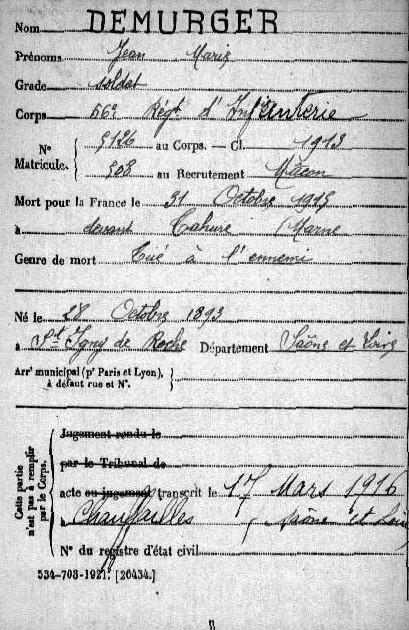 Nom DEMURGER
Prénoms Jean Marie
Grade soldat
Corps 56e Régt d'Infanterie
N° Matricule. 5126 au Corps. — Cl. 1913
508 au Recrutement Mâcon
Mort pour la France le 31 Octobre 1915
à devant Tahure (Marne
Genre de mort Tué à l'ennemi
Né le 28 Octobre 1893
à St Igny de Roche Département Saône et Loire
Arrt municipal (pr Paris et Lyon),
à défaut rue et N°.
Cette partie n'est pas à remplir par le Corps.
Jugement rendu le
par le Tribunal de
acte ou jugement transcrit le 17 Mars 1916
à Chauffailles (Saône et Loire
N° du registre d'état civil
534-708-1921. [26434.]